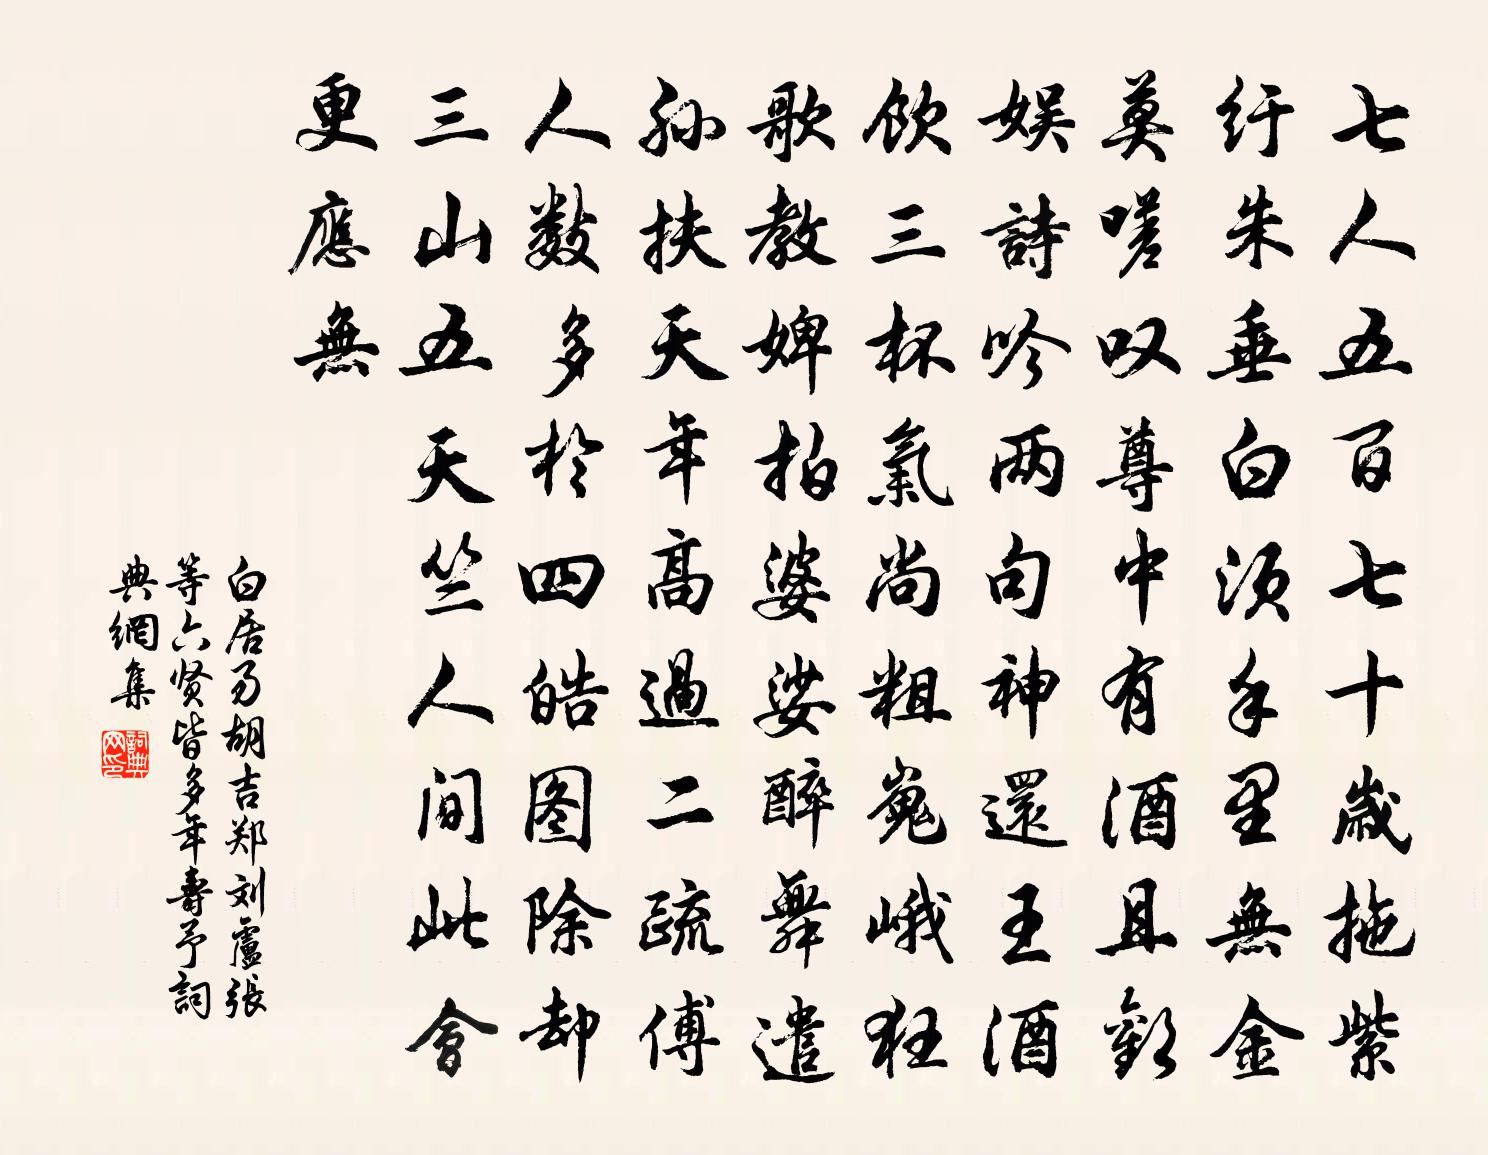 七人五百七十歲拖紫
纡朱垂白须手里無金
莫嗟叹尊中有酒且歡
娱詩吟两句神還王酒
飲三杯氣尚粗嵬峨狂
歌教婢拍婆娑醉舞遣
孙扶天年高過二疏傅
人數多於四皓图除却
三山五天竺人间此會
更應無
白居易胡吉郑刘盧張
等六贤皆多年壽予詞
典網集
詞典网印